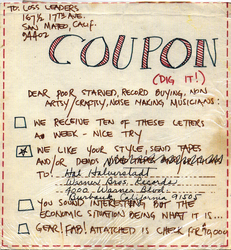 TO: LOSS LEADERS
167½ 17TH AVE.
SAN MATEO, CALIF.
94402
COUPON
(DIG IT!)
DEAR POOR STARVED, RECORD BUYING, NON
ARTY/CRAFTY, NOISE MAKING, MUSICIANS:
WE RECEIVE TEN OF THESE LETTERS
A WEEK - NICE TRY
WE LIKE YOUR STYLE, SEND TAPES
AND/OR DEMOS
TO: Hal Halverstadt
Warner Bros. Records
4000 Warner Blvd.
Burbank California 91505
YOU SOUND INTERESTING BUT THE
ECONOMIC SITUATION BEING WHAT IT IS...
GEAR! FAB! ATTATCHED IS CHECK FOR